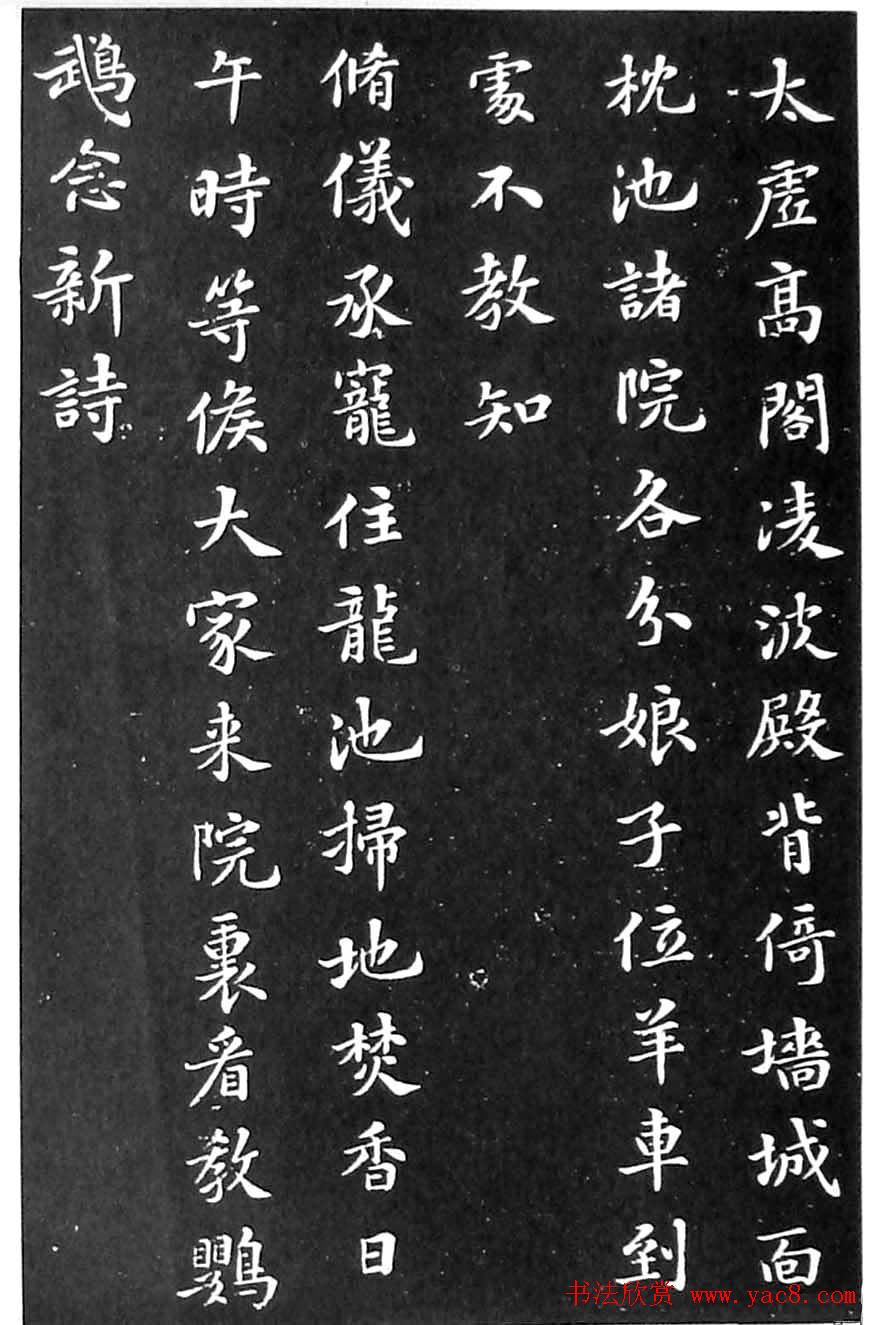 太虚高閣凌波殿背倚墻城面
枕池諸院各分娘子位羊車到
處不教知
脩儀承寵住龍池掃地焚香日
午時等候大家来院裏看教鸚
鵡念新詩
书法欣赏 www.yac8.com